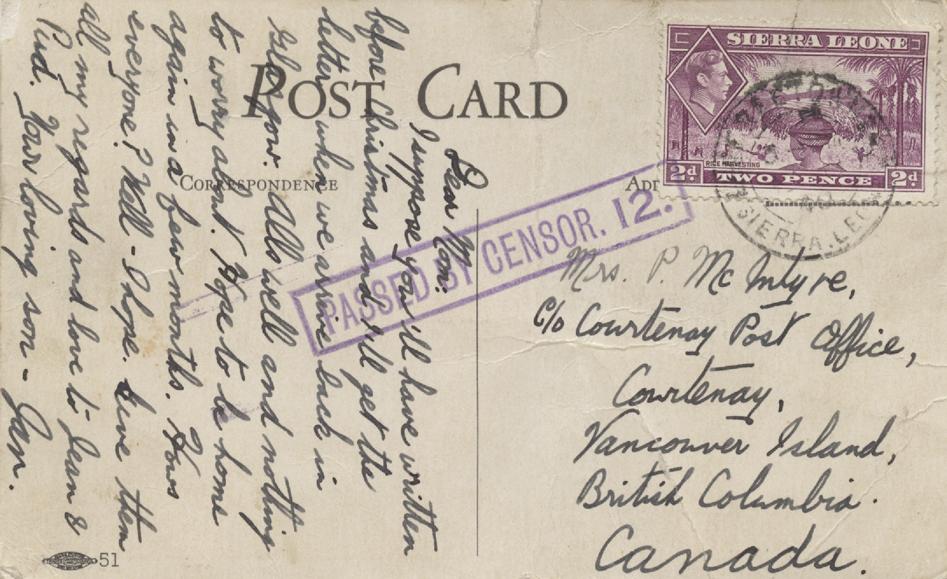 POST CARD
CORRESPONDENCE
SIERRA LEONE
RICE HARVESTING
2d TWO PENCE 2d
SIERRA.LEO
PASSED BY CENSOR. 12.
Dear Mom:
I suppose you'll have written
before Christmas and I'll get the
letter when we arrive back in
Glasgow. Alls well and nothing
to worry about. Hope to be home
again in a few months. Hows
everyone? Well - I hope. Give them
all my regards and love to Jean &
Your loving son -
Mrs. P. Mc Intyre,
C/o Courtenay Post Office,
Courtenay,
Vancouver Island,
British Columbia.
Canada.
51